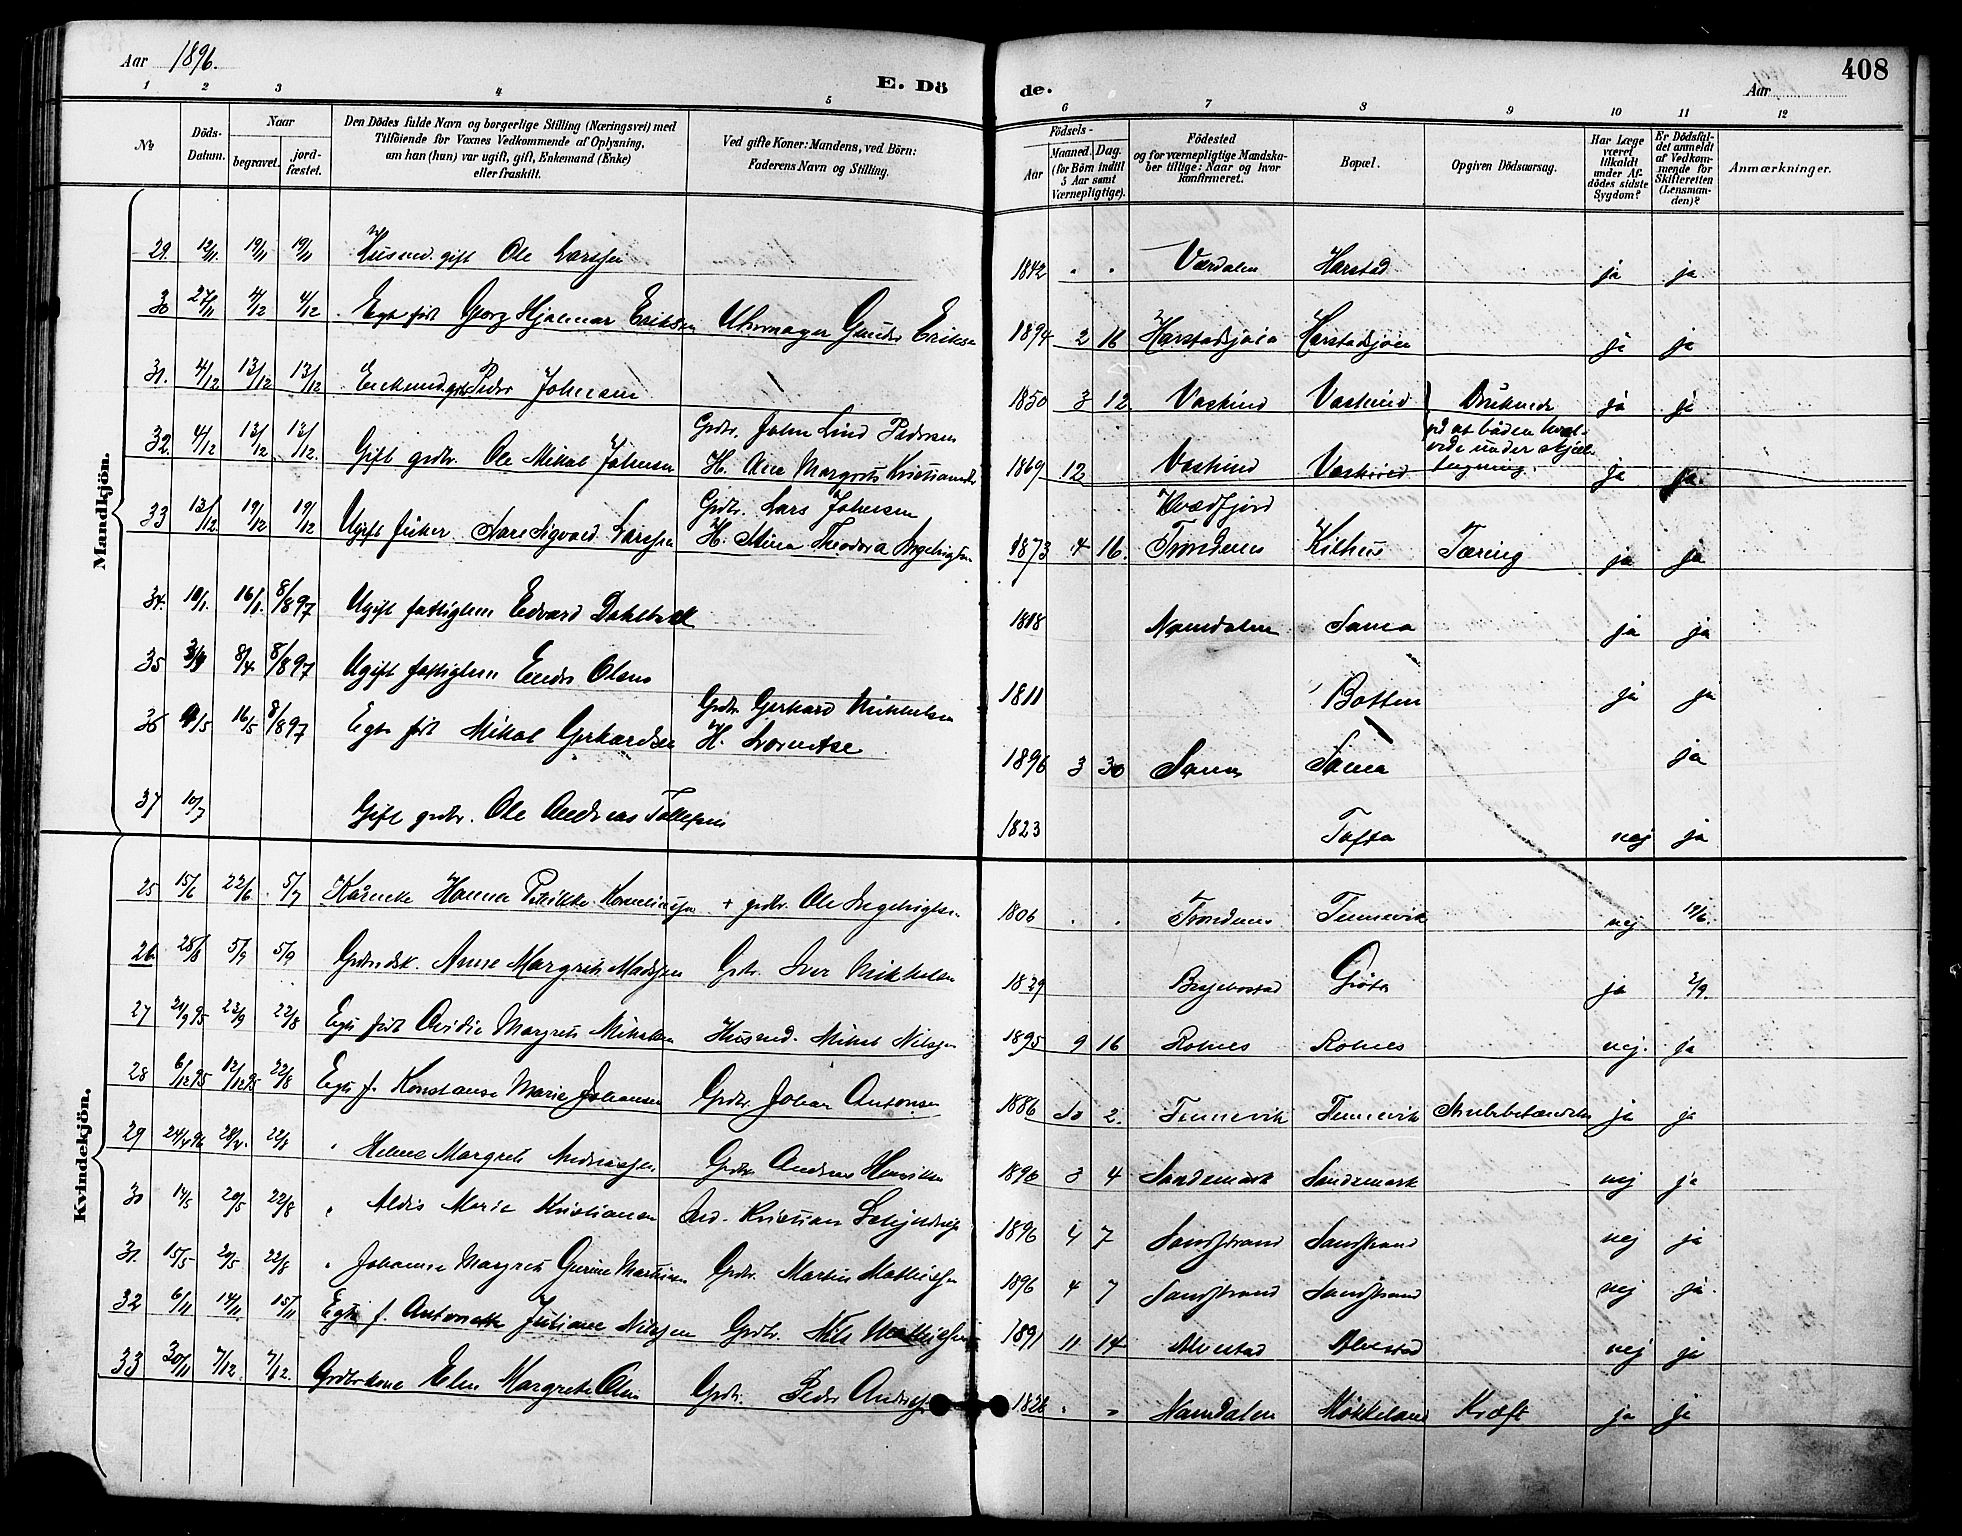 Aar 1896.
E. Döde.
Aar
408
1 2 3 4 5 6 7 8 9 10 11 12
No
Döds-Datum.
Naar
begravet.
jordfæstet.
Den Dödes fulde Navn og borgerlige Stilling (Næringsvei) med
Tilföiende for Voxnes Vedkommende af Oplysning,
om han (hun) var ugift, gift, Enkemand (Enke)
eller fraskilt.
Ved gifte Koner: Mandens, ved Börn:
Faderens Navn og Stilling.
Födsels-
Aar
Maaned. Dag.
(for Börn indtil
5 Aar samt
Værnepligtige).
Födested
og for værnepligtige Mandskaber tillige: Naar og hvor
konfirmeret.
Bopæl.
Opgiven Dödsaarsag.
Har Læge
været
tilkaldt
under Afdödes sidste
Sygdom?
Er Dödsfaldet anmeldt
af Vedkommende for
Skifteretten
(Lensmanden)?
Anmærkninger.
Mandkjön.
29. 12/11 19/11 19/11 Husmd. gift Ole Larssen 1842 " " Værdalen Harstad ja ja
30 27/11 4/12 4/12 Egte født Georg Hjalmar Eriksen Uhrmager Eriksen 1894 2 16 Harstadsjøen Harstadsjøen ja ja
31. 4/12 13/12 13/12 Enkemd. grdbr. Peder Johnsen 1850 3 12 Vaskind Vaskind Druknede ja ja
32. 4/12 13/12 13/12 Gift grdbr. Ole Mikal Johnsen Grdbr. John Lind Pedersen
H. Ane Margrete 1869 12 Vaskind Vaskind på at båden under ja ja.
33 13/12 19/12 19/12 Ugift fisker Aare Sigvard Larssen Grdbr. Lars Johnsen
H. Mina Theodora 1873 4 16. Kvædfjord
Trondenes Kilhus Tæring ja ja
34. 10/1. 16/1. 8/8 97 Ugift fattiglem Edvard 1818 Namdalen Sama ja ja
35 8/4 8/8 97 Ugift fattiglem Olsen 1811 Botten ja ja
36 9/5 16/5 8/8 97 Egte født Mikal Gerhardsen Grdbr Gerhard Mikkelsen
H. 1896 3 30 Sama Sama ja
37 10/7 Gift grdbr. Ole Andreas Tollefsen 1823 Tofta nej ja
Kvindekjön.
25 15/6 22/6 5/7 Kårenke Hanna + grdbr. Ole Ingebrigtsen 1806 " " Trondenes Tennevik nej 19/6.
26. 28/8 5/9 5/9 Anne Margrete Madsen Grdbr. Iver Mikkelsen 1829 Grøtø ja 2/9.
27 21/9 95 23/9 22/8 Egte født Margrete Mikalsen Husmd. Mikal Nilsen 1895 9 16 Rolnes Rolnes nej. ja
28 6/12 95 12/12 95 22/8 Egte f. Konstanse Marie Johansen Grdbr. Johan Antonsen 1886 10 2. Tennevik Tennevik ja ja
29 24/4 96 28/4. 22/8 " Helene Margrete Andreassen Grdbr Andreas Henriksen 1896 3 4 Sandemark Sandemark nej ja
30 14/5 20/5 22/8 " Aldis Marie Kristiansen Arb. Kristian 1896 4 7 Sandstrand Sandstrand nej ja
31. 15/5 20/5 22/8 " Johanne Margrete Martinsen Grdbr. Martin Mathissen 1896 4 7 Sandstrand Sandstrand nej ja.
32 6/11 14/11. 15/11 Egte f. Antonette Juliane Nilssen Grdbr. Nils Mathissen 1891 11 14 Alvestad Alvestad nej ja
33 30/11 7/12. 7/12. Grdbrkone Elen Margrete Olsen Grdbr. Peder Andreassen 1828 " " Namdalen Møkkeland Kræft ja ja